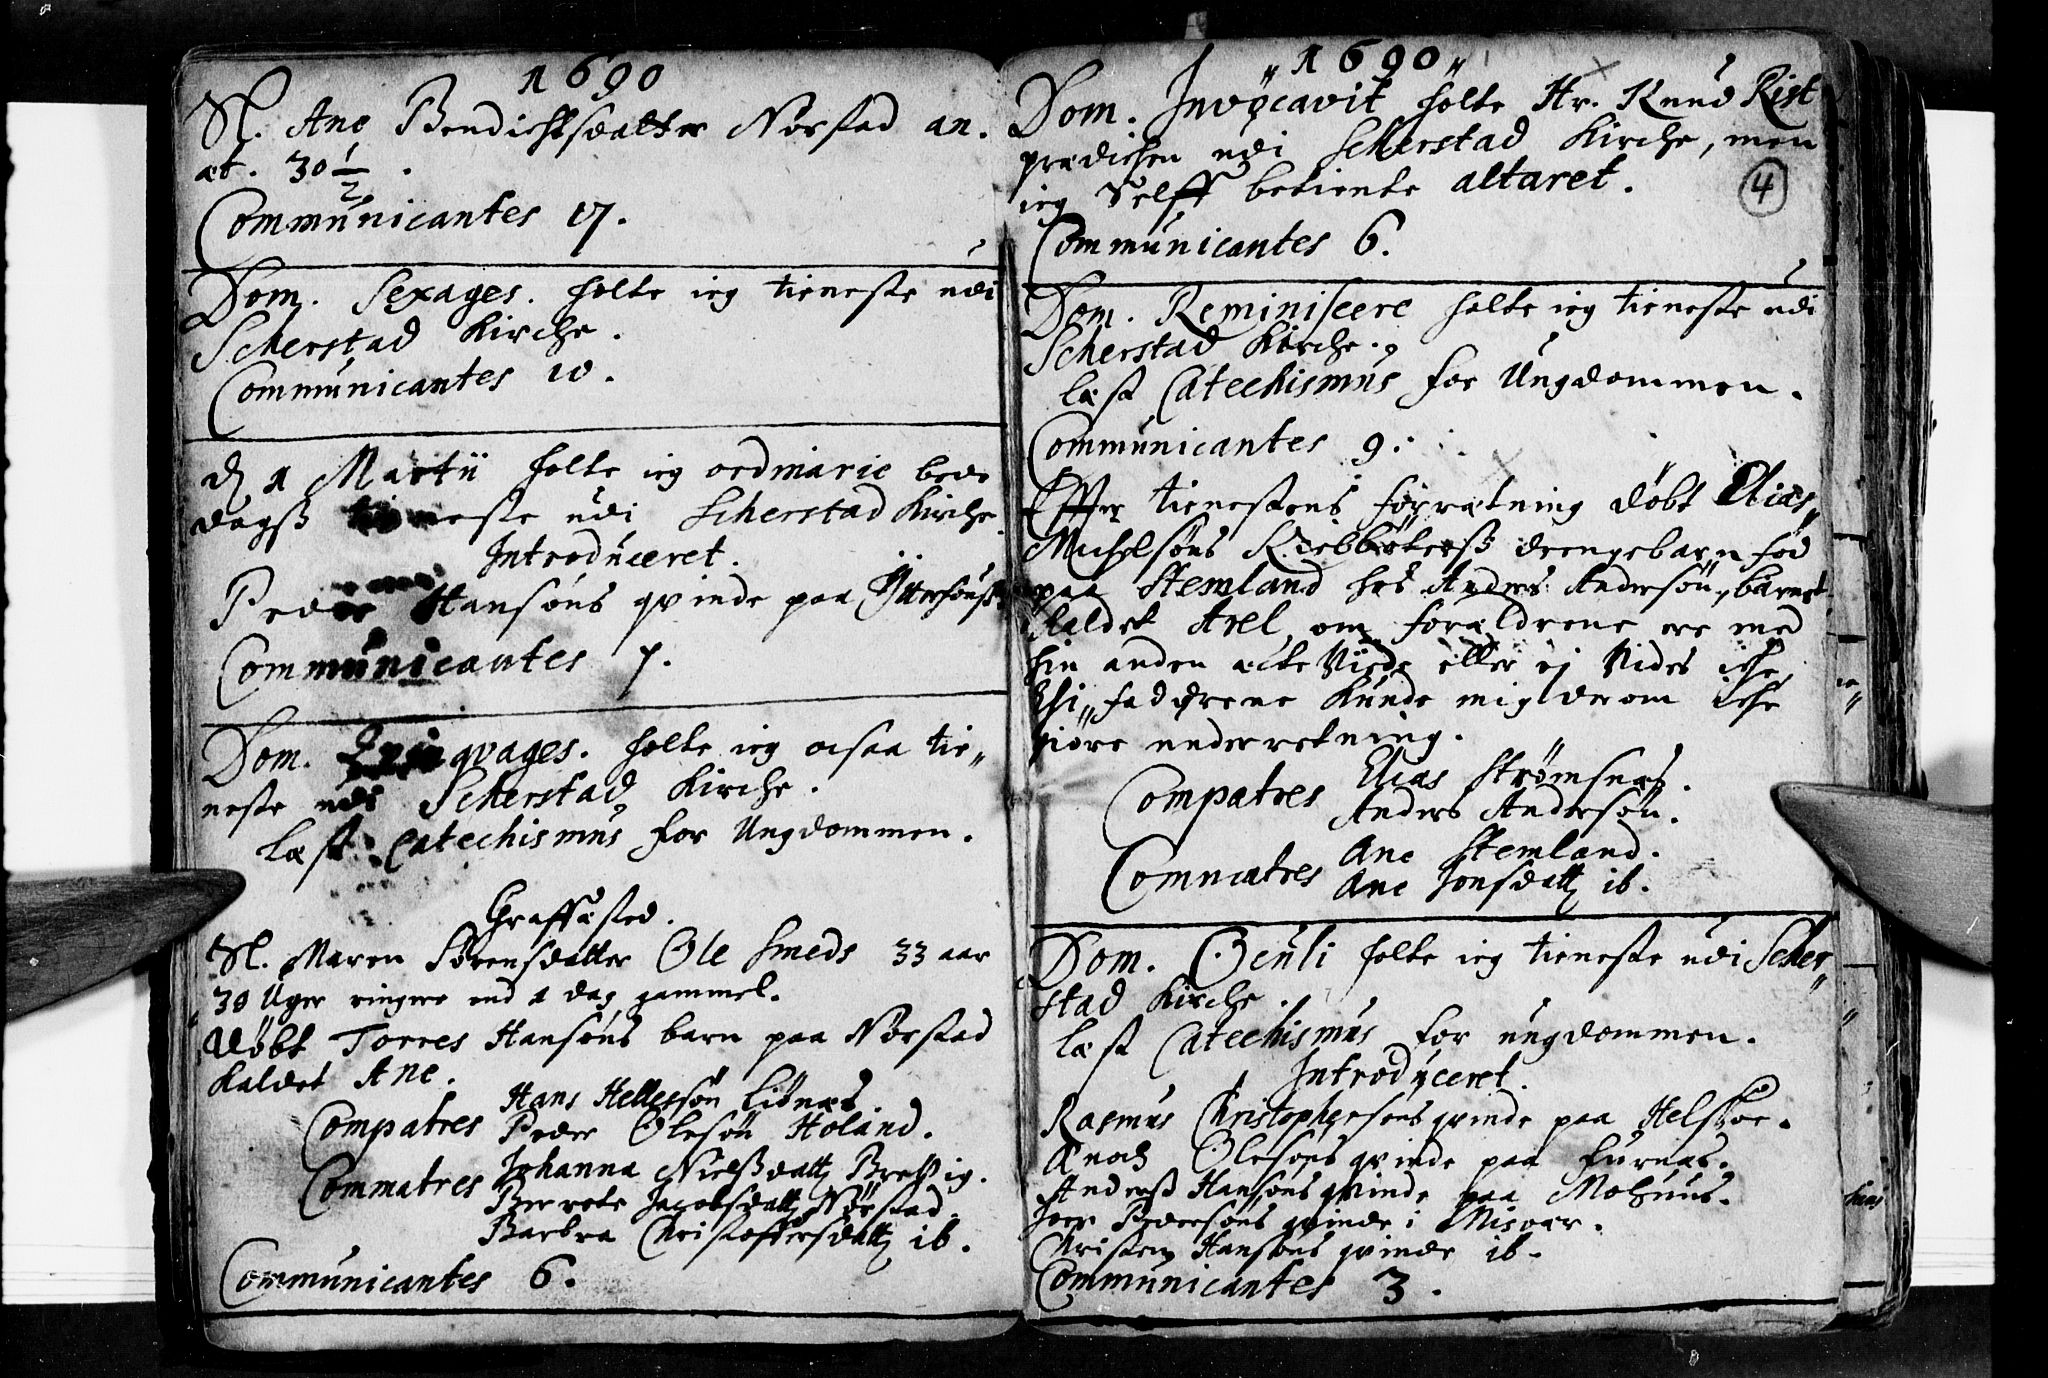 1690
Sl. Ane Bendichtsdatter Norstad an.
æt. 30 1/2.
Communicantes 17.
Dom. Sexages. holte ieg tieneste udi
Scherstad Kirche.
Communicantes 10.
d 1 Martii holte ieg ordinarie bede
dagsß tieneste udi Scherstad Kirche.
Introduceret.
Peder Hansøns qvinde paa
Communicantes 7.
Dom. Quinqvages. holte ieg ocsaa tie„
neste udi Scherstad Kirche.
Læst Catechismus for Ungdommen.
Graffæsted.
Sl. Maren Sørensdatter Ole Smeds 33 aar
30 Uger ringere end 1 dag gammel.
Døbt Torres Hansøns barn paa Norstad
kaldet Ane.
Compatres Hans Hellessøn Liønæs.
Peder Olesøn Holand.
Commatres Johanna Nielßdatt Brettvig.
Berrete Jacobsdatt Norstad.
Barbra Christoffersdatt ib.
Communicantes 6.
„1690„
4
Dom. Invocavit holte Hr. Knud Rist
prædichen udi Scherstad Kirche, men
ieg Selff betiente altaret.
Communicantes 6.
Dom. Reminiscere holte ieg tieneste udi
Scherstad Kirche.
Læst Catechismus for Ungdommen.
Communicantes 9.
Effter tienestens forretning døbt Elias„
Michelsøns drengebarn fød
paa Stemland hos Anders Andersøn, barnet
kaldet Axel, om forældrene ere med
hin anden ecte Viede eller ej Vides iche,
thi„ fadderene kunde mig derom iche
giøre underretning.
Compatres Elias Strømsnæs.
Anders Andersøn.
Commatres Ane Stemland.
Ane Jonsdatt ib.
Dom. Oculi holte ieg tieneste udi Scher„
stad Kirche.
Læst Catechismus for ungdommen.
Introduceret.
Rasmus Christophersøns qvinde paa Helskoe.
Enoch Olesøns qvinde paa Furnæs.
Anderß Hansøns qvinde paa Mohuus.
Joen Pedersøns qvinde i Misvær.
Christen Hansøns qvinde ib.
Communicantes 3.